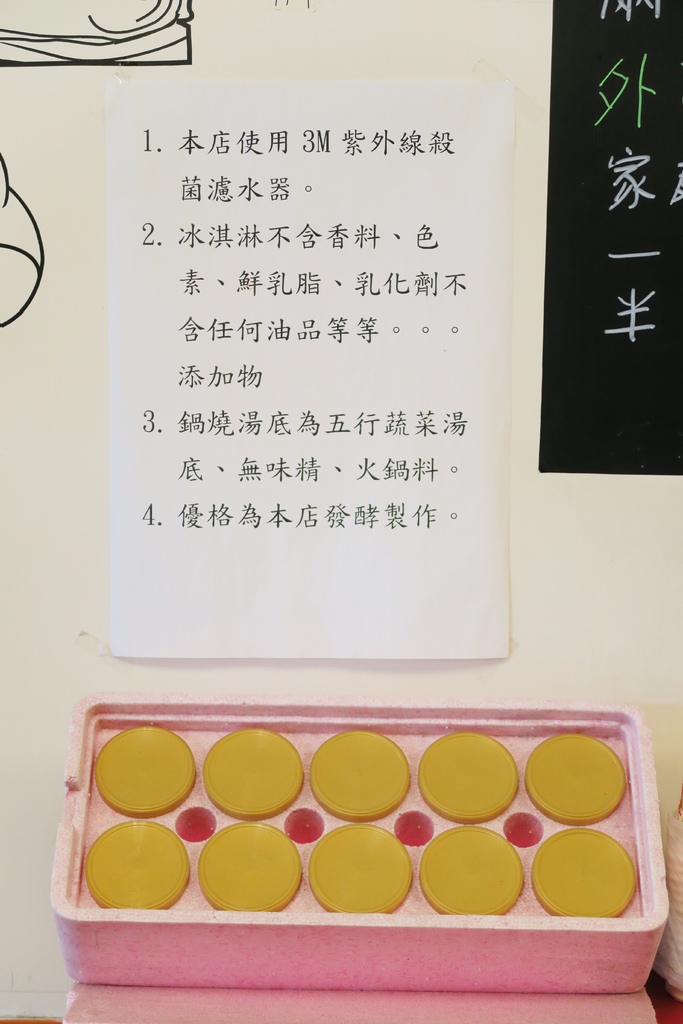 1. 本店使用 3M 紫外線殺
菌濾水器。
2. 冰淇淋不含香料、色
素、鮮乳脂、乳化劑不
含任何油品等等。。。
添加物
3. 鍋燒湯底為五行蔬菜湯
底、無味精、火鍋料。
4. 優格為本店發酵製作。
外
家
一
半